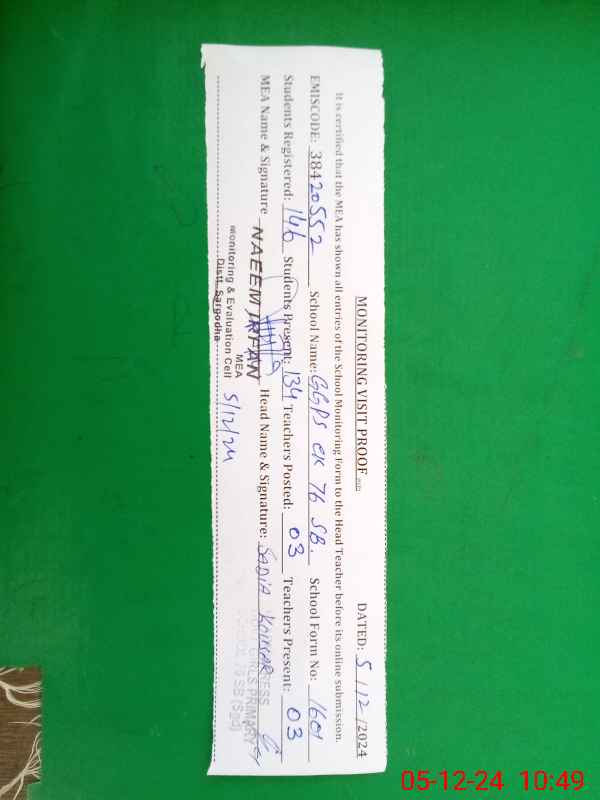 MONITORING VISIT PROOF DATED: 5/12/2024
It is certified that the MEA has shown all entries of the School Monitoring Form to the Head Teacher before its online submission.
EMISCODE: 38420552 School Name: GGPS CK 76 SB. School Form No: 1601
Students Registered: 146 Students Present: 134 Teachers Posted: 03 Teachers Present: 03
MEA Name & Signature NAEEM IRFAN Head Name & Signature: SADIA KOUSAR
MEA
Monitoring & Evaluation Cell
Distt. Sargodha
5/12/24
GIRLS PRIMARY
76 SB (Sgd)
05-12-24 10:49